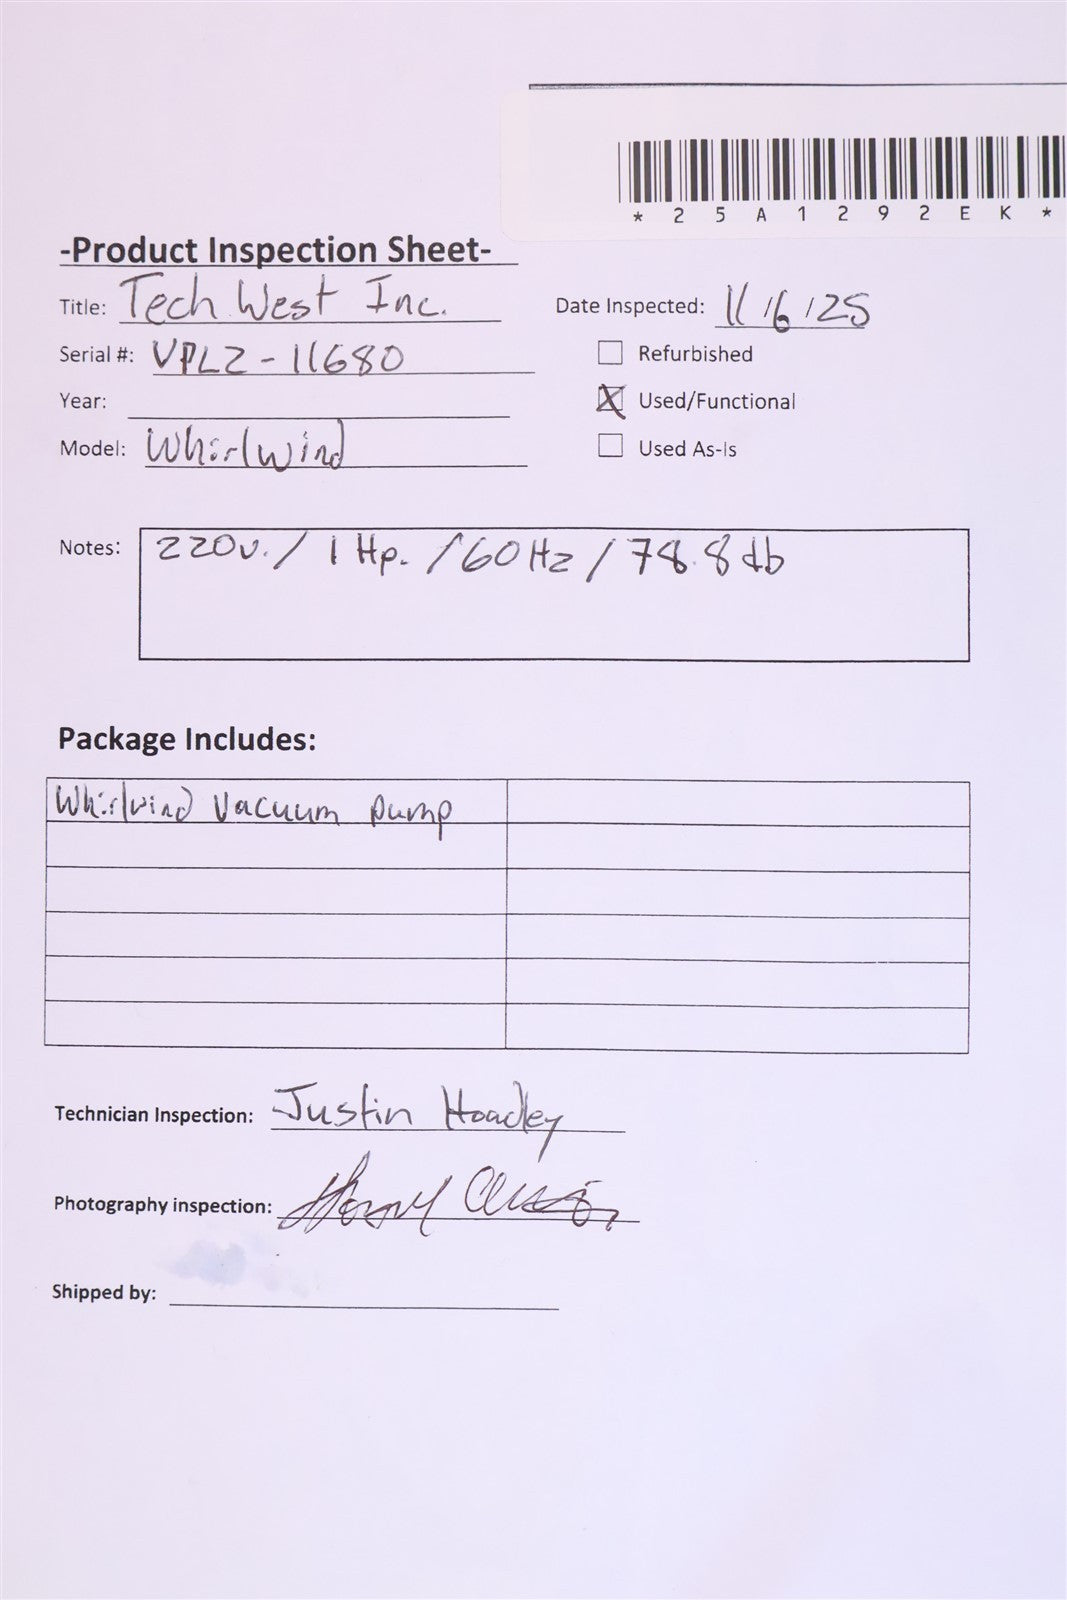 *25A1292EK*
-Product Inspection Sheet-
Title: Tech West Inc.
Date Inspected: 11/6/25
Serial #: VPL2-11680
Refurbished
Year:
X Used/Functional
Model: Whirlwind
Used As-Is
Notes: 220v. / 1 Hp. / 60Hz / 78.8 db
Package Includes:
Whirlwind Vacuum pump
Technician Inspection: Justin Hoadley
Photography inspection:
Shipped by: